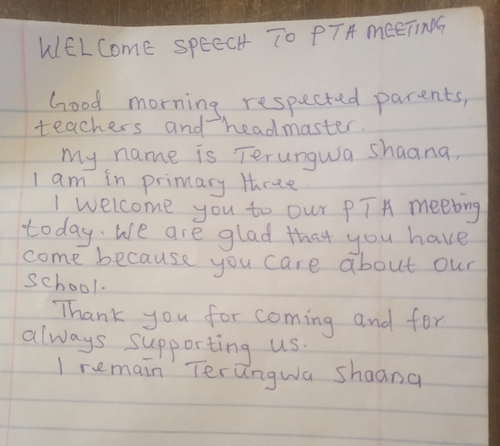 WELCOME SPEECH TO PTA MEETING
Good morning respected parents,
teachers and headmaster.
My name is Terungwa Shaana,
I am in primary three
I welcome you to our PTA meeting
today. We are glad that you have
come because you care about our
school.
Thank you for coming and for
always supporting us.
I remain Terungwa Shaana